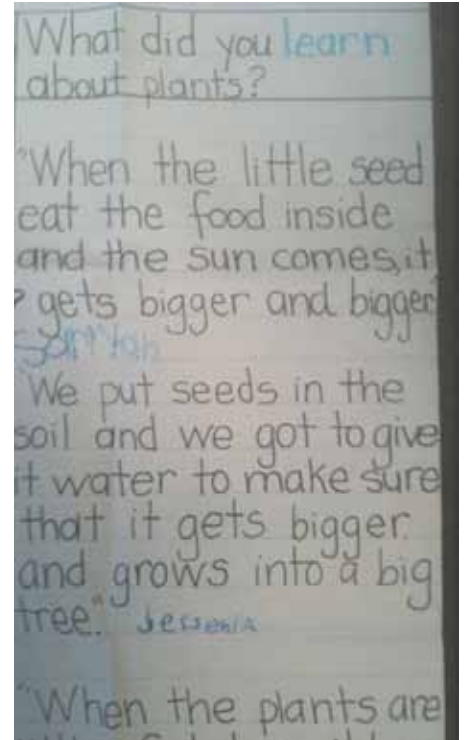 What did you learn
about plants?
"When the little seed
eat the food inside
and the sun comes, it
gets bigger and bigger
We put seeds in the
soil and we got to give
it water to make sure
that it gets bigger
and grows into a big
tree." Jessenia
"When the plants are